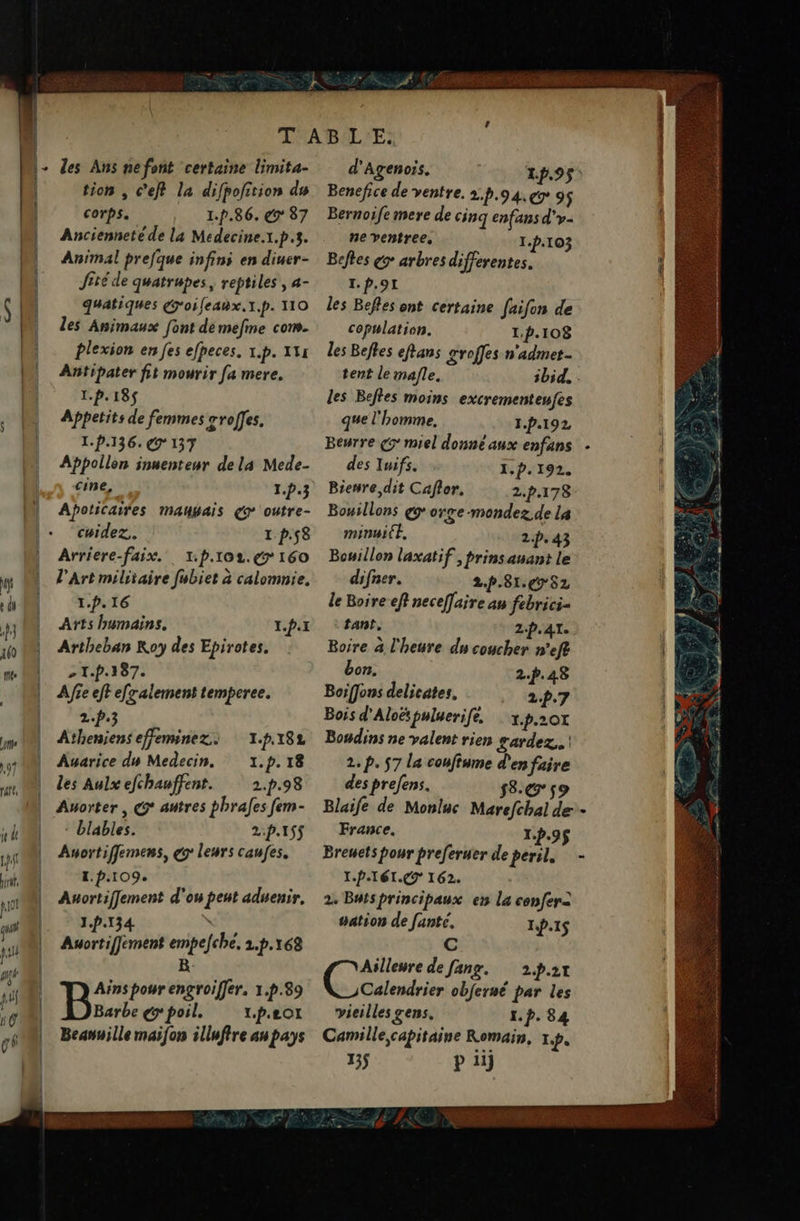 TABLE.
les Ans ne font certaine limita-
tion , c'eſt la diſpoſition du
corps. 1.p.86. & 87
Ancienneté de la Medecine.1.p.3.
Animal preſque infini en diuer-
ſité de quatrupes, reptiles , a-
quatiques & oiſeaux.1.p. 110
les Animaux ſont de meſme com-
plexion en ſes eſpeces. 1.p. 111
Antipater fit mourir ſa mere.
1.p. 185
Appetits de femmes groſſes.
1.p.136. & 137
Appollon inuenteur de la Mede-
cine, 1.p.3
Apoticaires mauuais & outre-
cuidez. 1 p.58
Arriere-faix. 1.p.102. & 160
l'Art militaire ſubiet à calomnie.
1.p. 16
Arts humains. 1.p.1
Artheban Roy des Epirotes.
1.p.187.
Aſie eſt eſgalement temperee.
2.p.3
Atheniens effeminez. 1.p.182
Auarice du Medecin. 1.p. 18
les Aulx eſchauffent. 2.p.98
Auorter , & autres phraſes ſem-
blables. 2.p.155
Auortiſſemens, & leurs cauſes.
1.p.109.
Auortiſſement d'ou peut aduenir.
1.p.134
Auortiſſement empeſché. 2.p.168
B
BAins pour engroiſſer. 1.p.89
Barbe & poil. 1.p.201
Beauuille maiſon illuſtre au pays
d'Agenois. 1.p.95
Benefice de ventre. 2.p.94. & 95
Bernoiſe mere de cinq enfans d'v-
ne ventree. 1.p.103
Beſtes & arbres differentes.
1.p.91
les Beſtes ont certaine ſaiſon de
copulation. 1.p.108
les Beſtes eſtans groſſes n'admet-
tent le maſle. ibid.
les Beſtes moins excrementeuſes
que l'homme. 1.p.192
Beurre & miel donné aux enfans
des Iuifs. 1.p.192.
Bieure,dit Caſtor. 2.p.178
Bouillons & orge-mondez de la
minuict. 2.p.43
Bouillon laxatif , prins auant le
diſner. 2.p.81. & 82
le Boire eſt neceſſaire au febrici-
tant. 2.p.41.
Boire à l'heure du coucher n'eſt
bon. 2.p.48
Boiſſons delicates. 2.p.7
Bois d'Aloës puluerisé. 1.p.201
Boudins ne valent rien gardez.
2.p.57 la couſtume d'en faire
des preſens. 58. & 59
Blaiſe de Monluc Mareſchal de
France. 1.p.95
Breuets pour preſeruer de peril.
1.p.161. & 162.
2. Buts principaux en la conſer-
uation de ſanté. 1.p.15
C
CAilleure de ſang. 2.p.21
Calendrier obſerué par les
vieilles gens. 1.p. 84
Camille,capitaine Romain. 1.p.
135 p iij